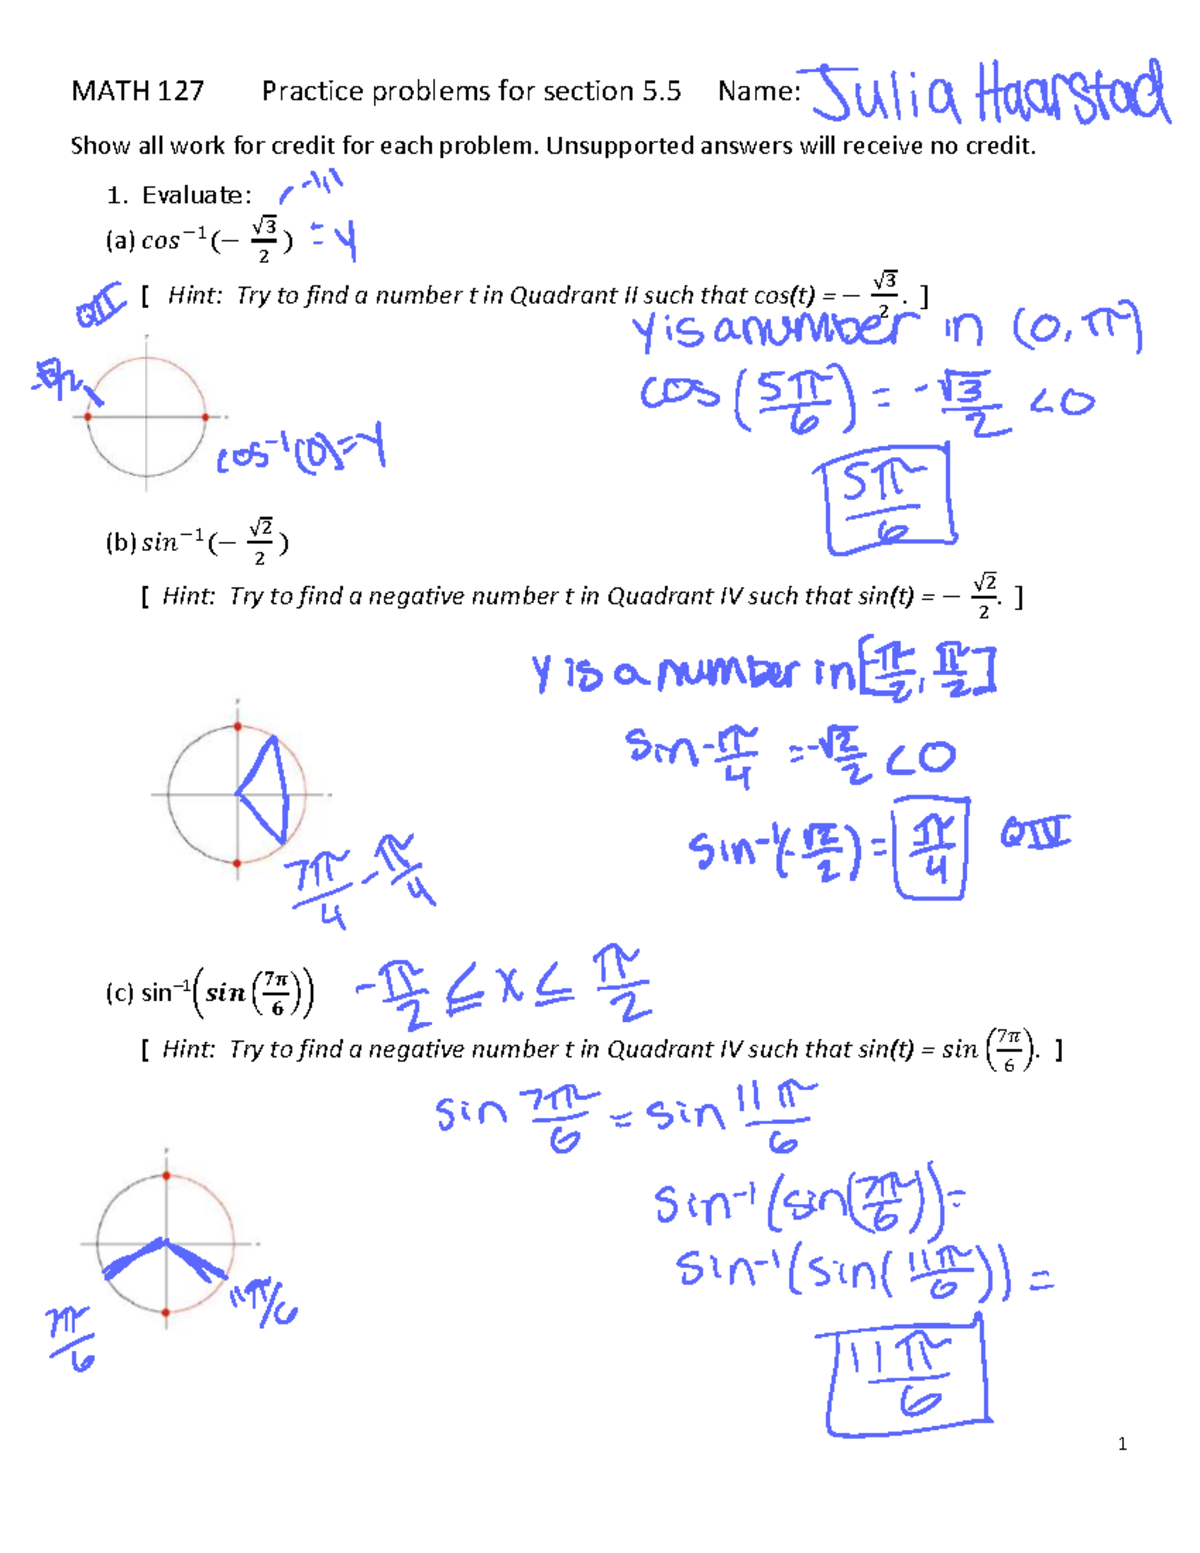 MATH 127 Practice problems for section 5.5 Name: Julia Haarstad
Show all work for credit for each problem. Unsupported answers will receive no credit.
1. Evaluate:
(a) cos⁻¹(− √3/2) = y
QII [ Hint: Try to find a number t in Quadrant II such that cos(t) = − √3/2. ]
y is a number in (0, π)
cos (5π/6) = -√3/2 < 0
cos⁻¹(0) = y
5π/6
(b) sin⁻¹(− √2/2)
[ Hint: Try to find a negative number t in Quadrant IV such that sin(t) = − √2/2. ]
y is a number in [-π/2, π/2]
sin -π/4 = -√2/2 < 0
sin⁻¹(-√2/2) = π/4 QIV
7π/4 - π/4
(c) sin⁻¹(sin(7π/6)) -π/2 ≤ x ≤ π/2
[ Hint: Try to find a negative number t in Quadrant IV such that sin(t) = sin (7π/6). ]
sin 7π/6 = sin 11π/6
sin⁻¹(sin(7π/6)) =
sin⁻¹(sin(11π/6)) =
11π/6
7π/6
11π/6
1